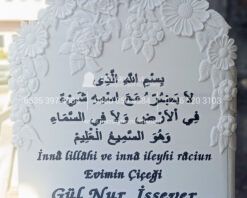 بِسْمِ اللهِ الَّذِى
لاَ يَضُرُّ مَعَ اسْمِهِ شَيْءٌ
فِي الْأَرْضِ وَلاَ فِي السَّمَاءِ
وَهُوَ السَّمِيعُ الْعَلِيمُ
İnnâ lillâhi ve innâ ileyhi râciun
Evimin Çiçeği
Gül Nur İssever